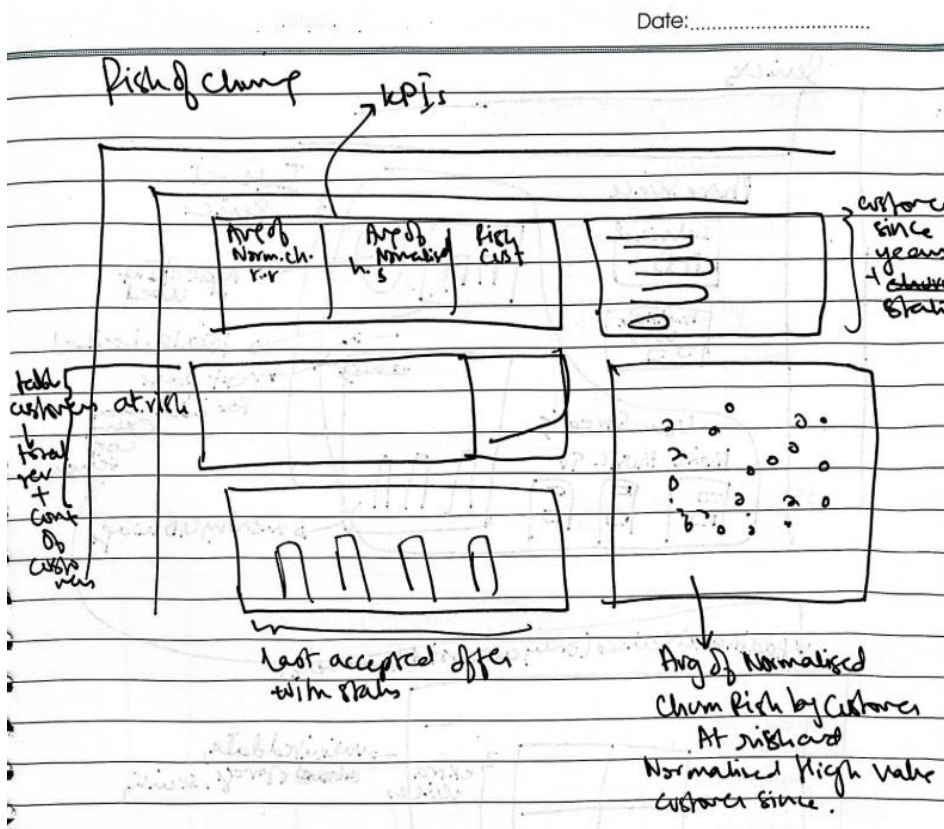 Date:
Risk of churn
KPIs
Avg of
Norm.ch.
r.r
Avg of
Normalised
h.s
Risk
Cust
customer
since
years
+
status
table
customers at risk
total
rev
+
count
of
customers
Last accepted offer
with status
Avg of Normalised
Churn Risk by Customer
At risk and
Normalised High value
customer since.